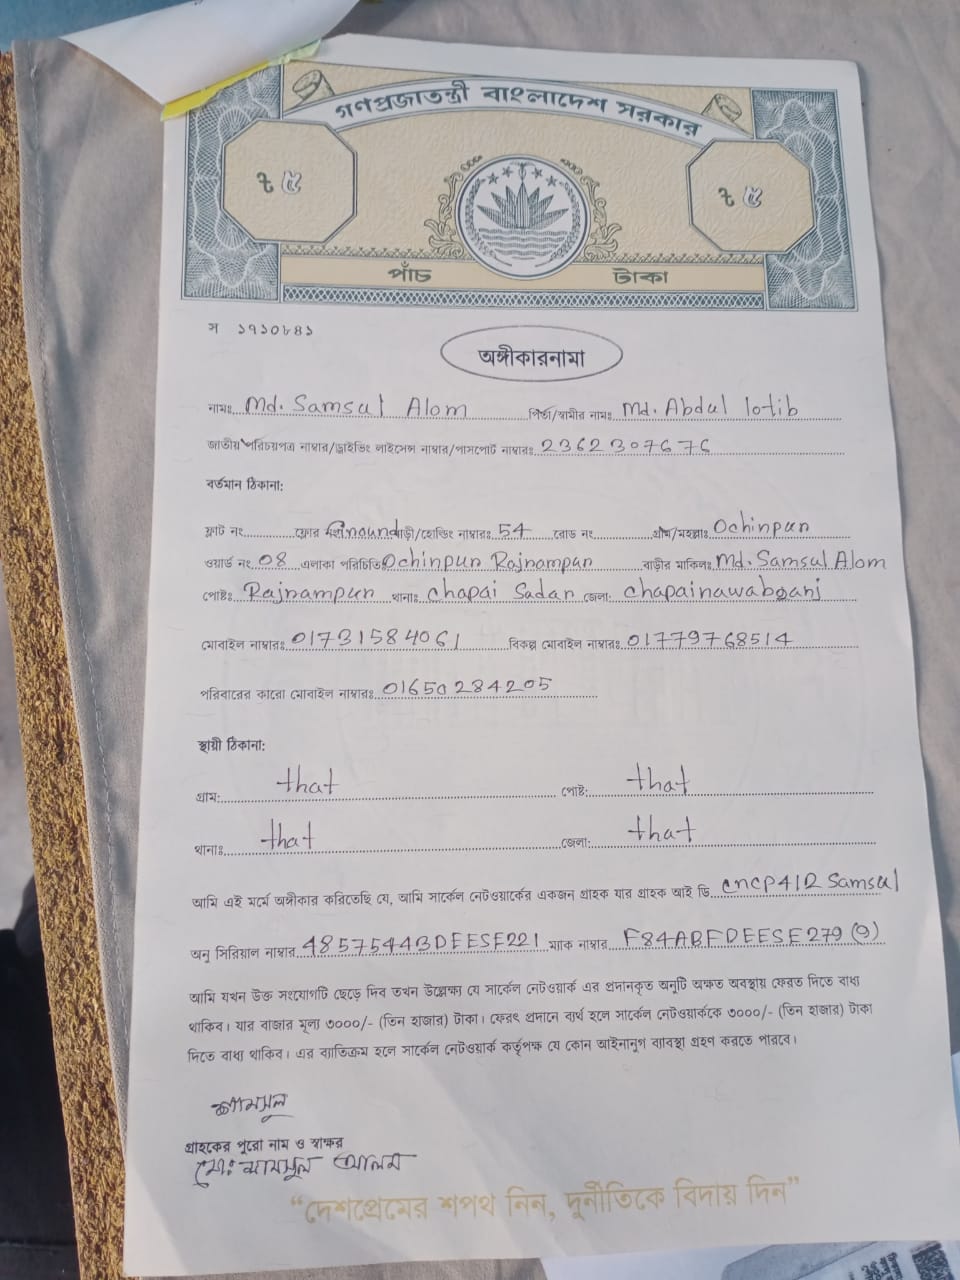 গণপ্রজাতন্ত্রী বাংলাদেশ সরকার
৳ ৫ ৳ ৫
পাঁচ টাকা
স ১৭১০৮৪১
অঙ্গীকারনামা
নামঃ Md. Samsul Alom পিতা/স্বামীর নামঃ Md. Abdul lotib
জাতীয় পরিচয়পত্র নাম্বার/ড্রাইভিং লাইসেন্স নাম্বার/পাসপোর্ট নাম্বারঃ 2362307676
বর্তমান ঠিকানা:
ফ্লাট নং ফ্লোর নং Ground বাড়ী/হোল্ডিং নাম্বারঃ 54 রোড নং গ্রাম/মহল্লাঃ Ochinpur
ওয়ার্ড নং 08 এলাকা পরিচিতিঃ Ochinpur Rajrampur বাড়ীর মালিকঃ Md. Samsul Alom
পোষ্টঃ Rajrampur থানাঃ Chapai Sadar জেলা: chapainawabganj
মোবাইল নাম্বারঃ 01731584061 বিকল্প মোবাইল নাম্বারঃ 01779768514
পরিবারের কারো মোবাইল নাম্বারঃ 01650284205
স্থায়ী ঠিকানা:
গ্রাম: that পোষ্ট: that
থানাঃ that জেলা: that
আমি এই মর্মে অঙ্গীকার করিতেছি যে, আমি সার্কেল নেটওয়ার্কের একজন গ্রাহক যার গ্রাহক আই ডি. cncp412 Samsul
অনু সিরিয়াল নাম্বার 48575443DEE5E221 ম্যাক নাম্বার F84ABFDEE5E279 (9)
আমি যখন উক্ত সংযোগটি ছেড়ে দিব তখন উল্লেক্ষ্য যে সার্কেল নেটওয়ার্ক এর প্রদানকৃত অনুটি অক্ষত অবস্থায় ফেরত দিতে বাধ্য
থাকিব। যার বাজার মূল্য ৩০০০/- (তিন হাজার) টাকা। ফেরৎ প্রদানে ব্যর্থ হলে সার্কেল নেটওয়ার্ককে ৩০০০/- (তিন হাজার) টাকা
দিতে বাধ্য থাকিব। এর ব্যতিক্রম হলে সার্কেল নেটওয়ার্ক কর্তৃপক্ষ যে কোন আইনানুগ ব্যাবস্থা গ্রহণ করতে পারবে।
শামসুল
গ্রাহকের পুরো নাম ও স্বাক্ষর
মোঃ সামসুল আলম
“দেশপ্রেমের শপথ নিন, দুর্নীতিকে বিদায় দিন”